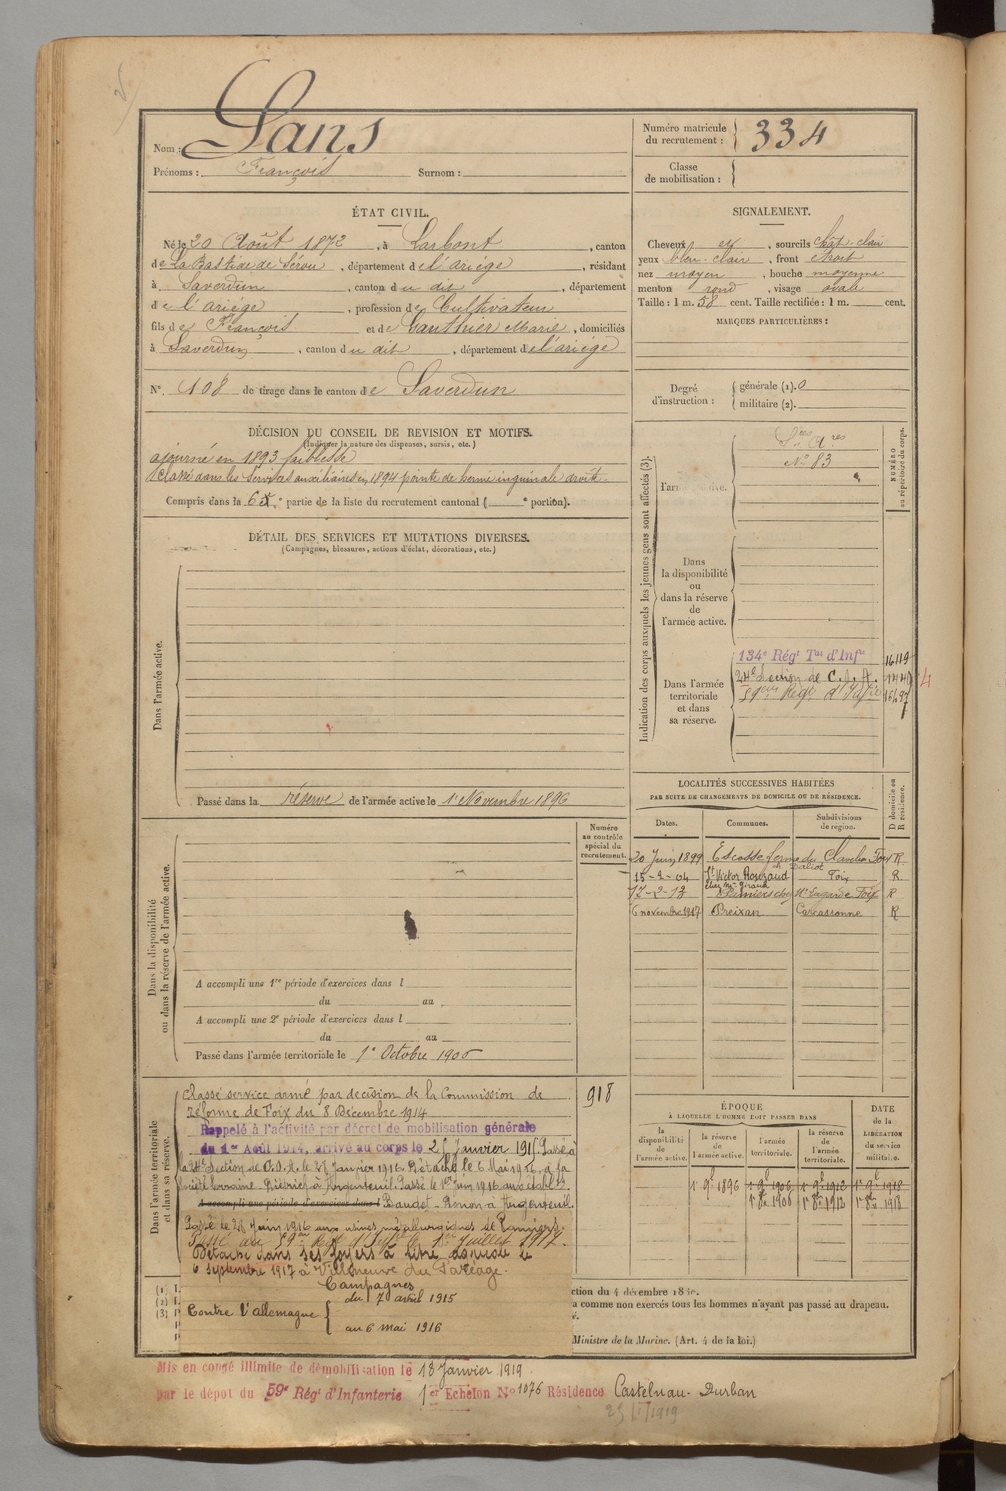 Nom : Sans
Prénoms : François Surnom :
Numéro matricule du recrutement : 334
Classe de mobilisation :
ÉTAT CIVIL.
Né le 20 Août 1872, à Larbont, canton
de La Bastide de Sérou, département de l'ariège, résidant
à Saverdun, canton du dit, département
de l'ariège, profession de Cultivateur
fils de François et de Gauthier Marie, domiciliés
à Saverdun, canton du dit, département de l'ariège
N° 108 de tirage dans le canton de Saverdun
SIGNALEMENT.
Cheveux et, sourcils chât. clair
yeux bleu-clair, front étroit
nez moyen, bouche moyenne
menton rond, visage ovale
Taille : 1 m. 58 cent. Taille rectifiée : 1 m. cent.
MARQUES PARTICULIÈRES :
Degré d'instruction : générale (1). 0
militaire (2).
DÉCISION DU CONSEIL DE REVISION ET MOTIFS.
(Indiquer la nature des dispenses, sursis, etc.)
ajourné en 1893 faiblesse
Classé dans les Services auxiliaires en 1894 pointe de hernie inguinale droite.
Compris dans la 6e partie de la liste du recrutement cantonal ( e portion).
DÉTAIL DES SERVICES ET MUTATIONS DIVERSES.
(Campagnes, blessures, actions d'éclat, décorations, etc.)
Dans l'armée active.
Passé dans la réserve de l'armée active le 1er Novembre 1896
Indication des corps auxquels les jeunes gens sont affectés (3).
NUMÉRO au répertoire du corps.
N° 83
Dans
la disponibilité
ou
dans la réserve
de
l'armée active.
Dans l'armée
territoriale
et dans
sa réserve.
134e Régt Tal d'Infie 16119
24e Section de C. O. A.
59eme Régt d'Infie
LOCALITÉS SUCCESSIVES HABITÉES
PAR SUITE DE CHANGEMENTS DE DOMICILE OU DE RÉSIDENCE.
Dates. Communes. Subdivisions de région. D domicile ou R résidence.
20 Juin 1899 Escosse ferme du Clavelier Foix R
15-2-04 St Victor Rouzaud Foix R
17-2-13 Pamiers Foix R
6 novembre 1917 Breixan Carcassonne R
Dans la disponibilité ou dans la réserve de l'armée active.
Numéro au contrôle spécial du recrutement.
A accompli une 1re période d'exercices dans l
du au
A accompli une 2e période d'exercices dans l
du au
Passé dans l'armée territoriale le 1er Octobre 1906
Dans l'armée territoriale et dans sa réserve.
918
Classé service armé par décision de la Commission de
réforme de Foix du 8 Décembre 1914
Rappelé à l'activité par décret de mobilisation générale
du 1er Août 1914, arrivé au corps le 25 Janvier 1915 Passé à
la 24e Section de C.O.A. le 21 Janvier 1916. Détaché le 6 Mai 1916 à la
Société lorraine Diétrich à Argenteuil. Passé le 1er Juin 1916 aux établts
A accompli une période d'exercices dans l Baudet-Donon à Argenteuil.
Passé le 28 Juin 1916 aux usines métallurgiques de Pamiers.
Passé au 59me Régt d'Infie le 1er Juillet 1917.
Détaché dans ses foyers à titre agricole le
6 Septembre 1917 à Villeneuve du Paréage.
Campagnes
Contre l'allemagne du 7 avril 1915
au 6 mai 1916
ÉPOQUE
A LAQUELLE L'HOMME DOIT PASSER DANS
la disponibilité de l'armée active.
la réserve de l'armée active.
l'armée territoriale.
la réserve de l'armée territoriale.
DATE de la LIBÉRATION du service militaire.
1er 9bre 1896 1er 9bre 1906 1er 9bre 1912 1er 9bre 1918
1er 8bre 1906 1er 8bre 1912 1er 8bre 1918
(1)
(2)
(3)
ction du 4 décembre
a comme non exercés tous les hommes n'ayant pas passé au drapeau.
Ministre de la Marine. (Art. 4 de la loi.)
Mis en congé illimité de démobilisation le 18 Janvier 1919.
par le dépôt du 59e Régt d'Infanterie 1er Echelon N° 1076 Résidence Castelnau-Durban